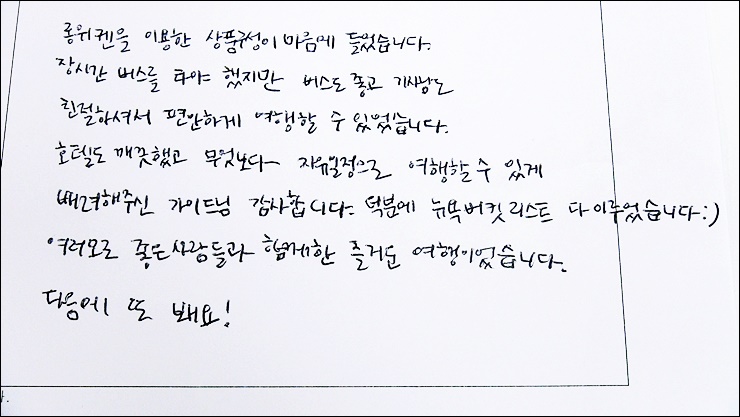 롱위켄을 이용한 상품구성이 마음에 들었습니다.
장시간 버스를 타야 했지만 버스도 좋고 기사님도
친절하셔서 편안하게 여행할 수 있었습니다.
호텔도 깨끗했고 무엇보다~ 자유일정으로 여행할 수 있게
배려해주신 가이드님 감사합니다. 덕분에 뉴욕버킷리스트 다 이루었습니다:)
여러모로 좋은사람들과 함께한 즐거운 여행이었습니다.
다음에 또 봬요!